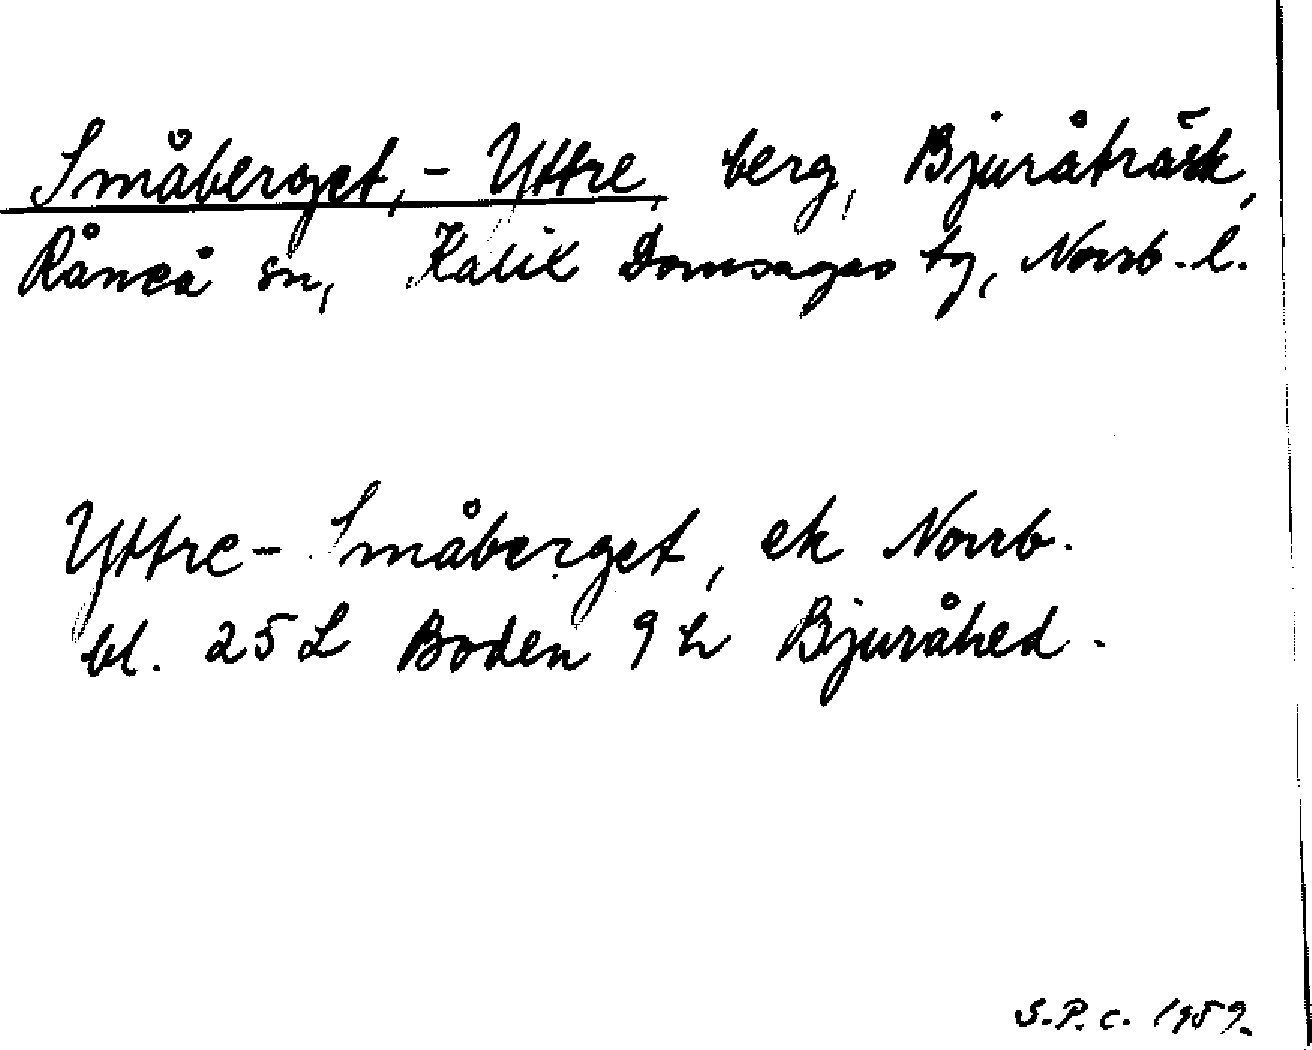 Småberget, - Yttre, berg, Bjuråträsk,
Råneå sn, Kalix Domsagas tg, Norrb. l.
Yttre - Småberget, ek Norrb.
bl. 25 L Boden 9 h Bjuråhed.
S.P.c. 1959.